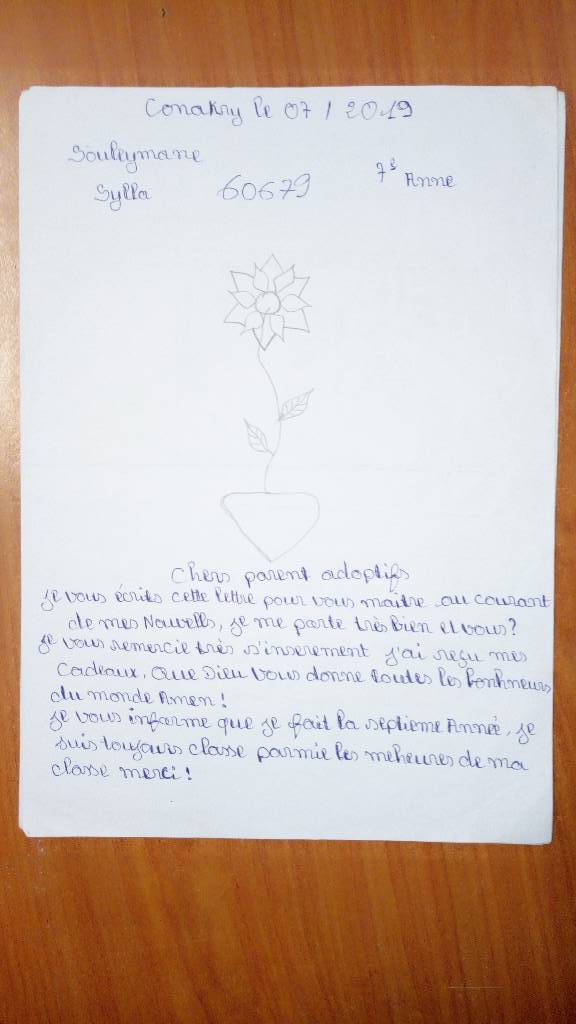 Conakry le 07 / 2019
Souleymane
Sylla 60679 7e Anne
Chers parent adoptifs
je vous écrits cette lettre pour vous maitre au courant
de mes Nouvells, je me parte très bien et vous?
je vous remercie très s'inserement j'ai reçu mes
Cadeaux, que Dieu vous donne toutes les bonhneurs
du monde Amen!
je vous informe que je fait la septieme Année, je
suis toujours classe parmie les meheures de ma
classe merci!